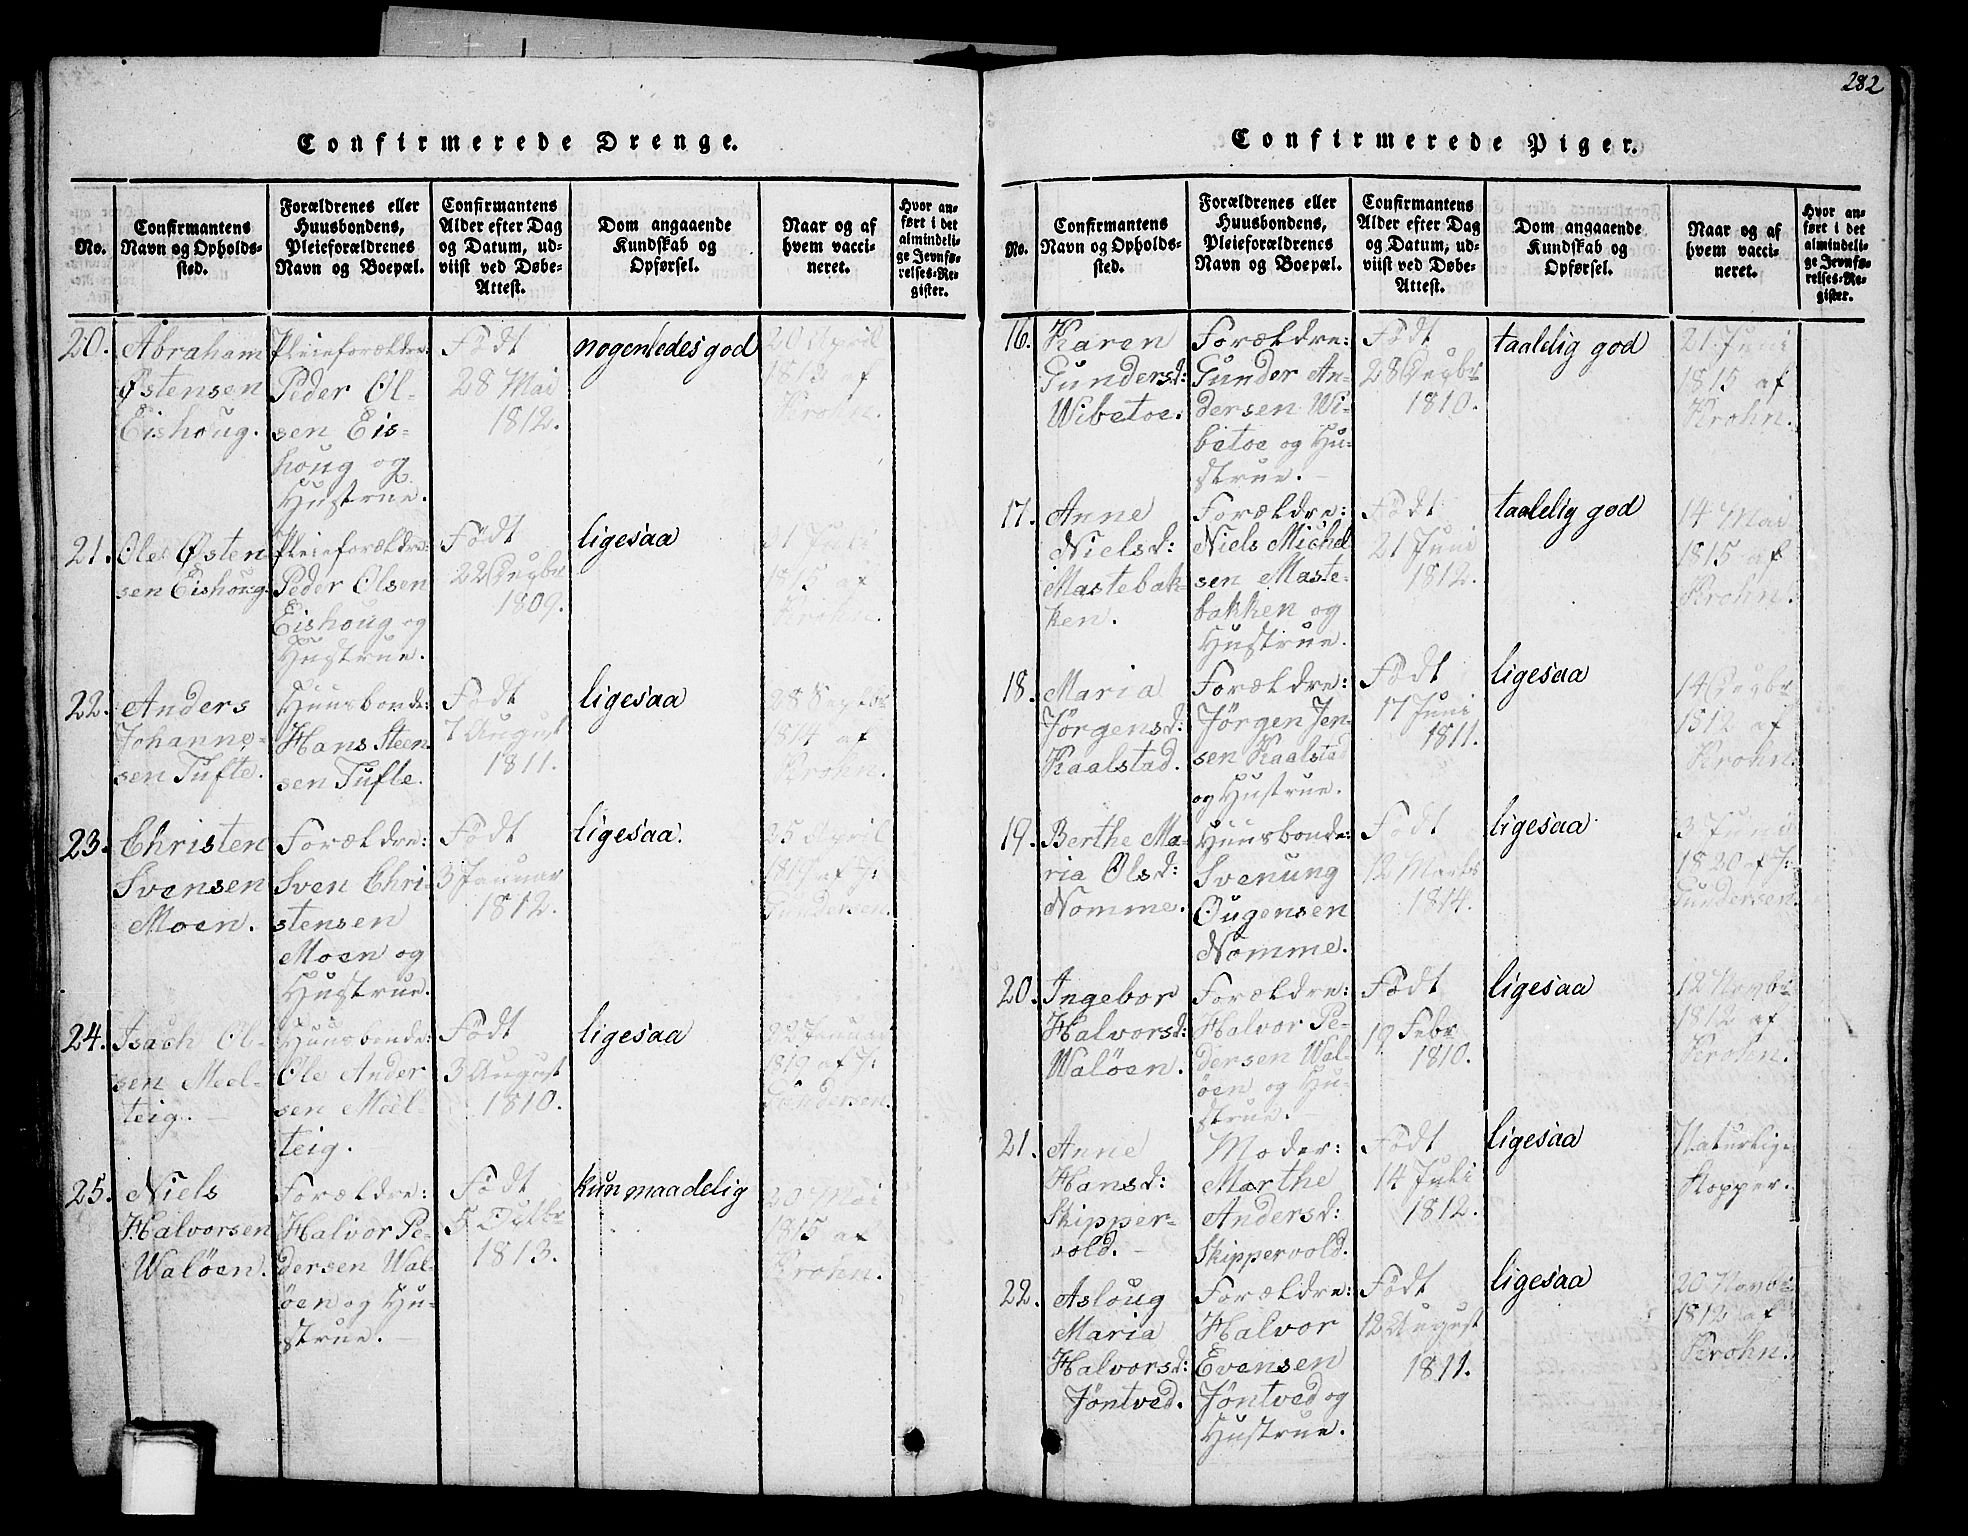 282
Confirmerede Drenge.
No.
Confirmantens
Navn og Opholds-
sted.
Forældrenes eller
Huusbondens,
Pleieforældrenes
Navn og Boepæl.
Confirmantens
Alder efter Dag
og Datum, ud-
viist ved Døbe-
Attest.
Dom angaaende
Kundskab og
Opførsel.
Naar og af
hvem vacci-
neret.
Hvor an-
ført i det
almindeli-
ge Jevnfø-
relses-Re-
gister.
20.
Abraham
Østensen
Eishoug.
Pleieforældre:
Peder Ol-
sen Eis-
houg og
Hustrue.
Født
28 Mai
1812.
nogenledes god
20 April
1813 af
Krohn.
21.
Ole Østen
sen Eishoug.
Pleieforældre:
Peder Olsen
Eishoug og
Hustrue.
Født
22
1809.
ligesaa
21
1815 af
Krohn.
22.
Anders
Johanne-
sen Tufte.
Huusbonde:
Hans Steen
sen Tufte.
Født
7 August
1811.
ligesaa
28 Septbr
1814 af
Krohn.
23.
Christen
Svensen
Moen.
Forældre:
Sven Chri-
stensen
Moen og
Hustrue.
Født
3 Januar
1812.
ligesaa.
25 April
1819 af J:
Gundersen.
24.
Isach Ol-
sen Meel-
teig.
Huusbonde:
Ole Ander
sen Meel-
teig.
Født
3 August
1810.
ligesaa
22 Januar
1819 af J:
Gundersen.
25.
Niels
Halvorsen
Waløen.
Forældre:
Halvor Pe-
dersen Wal-
øen og Hu-
strue.
Født
5 Octbr
1813.
kun maadelig
20 Mai
1815 af
Krohn.
Confirmerede Piger.
No.
Confirmantens
Navn og Opholds-
sted.
Forældrenes eller
Huusbondens,
Pleieforældrenes
Navn og Boepæl.
Confirmantens
Alder efter Dag
og Datum, ud-
viist ved Døbe-
Attest.
Dom angaaende
Kundskab og
Opførsel.
Naar og af
hvem vacci-
neret.
Hvor an-
ført i det
almindeli-
ge Jevnfø-
relses-Re-
gister.
16.
Karen
Gundersd:
Wibetoe.
Forældre:
Gunder An-
dersen Wi-
betoe og Hu-
strue.
Født
28
1810.
taalelig god
21
1815 af
Krohn.
17.
Anne
Nielsd:
Mastebak-
ken.
Forældre:
Niels Michel
sen Maste-
bakken og
Hustrue.
Født
21 Juni
1812.
taalelig god
14 Mai
1815 af
Krohn.
18.
Maria
Jørgensd:
Kaalstad.
Forældre:
Jørgen Jen
sen Kaalstad
og Hustrue.
Født
17 Juni
1811.
ligesaa
14
1812 af
Krohn.
19.
Berthe Ma-
ria Olsd:
Nomme.
Huusbonde:
Svenung
Ougensen
Nomme.
Født
12 Marts
1814.
ligesaa
3 Juni
1820 af J:
Gundersen.
20.
Ingebor
Halvorsd:
Waløen.
Forældre:
Halvor Pe-
dersen Wal-
øen og Hu-
strue.
Født
19 Febr
1810.
ligesaa
12 Novbr
1812 af
Krohn.
21.
Anne
Hansd:
Skipper-
vold.
Moder:
Marthe
Andersd:
Skippervold.
Født
14 Juli
1812.
ligesaa
Naturlige
Kopper.
22.
Asloug
Maria
Halvorsd:
Jøntved.
Forældre:
Halvor
Evensen
Jøntved og
Hustrue.
Født
12 August
1811.
ligesaa
20 Novbr
1812 af
Krohn.